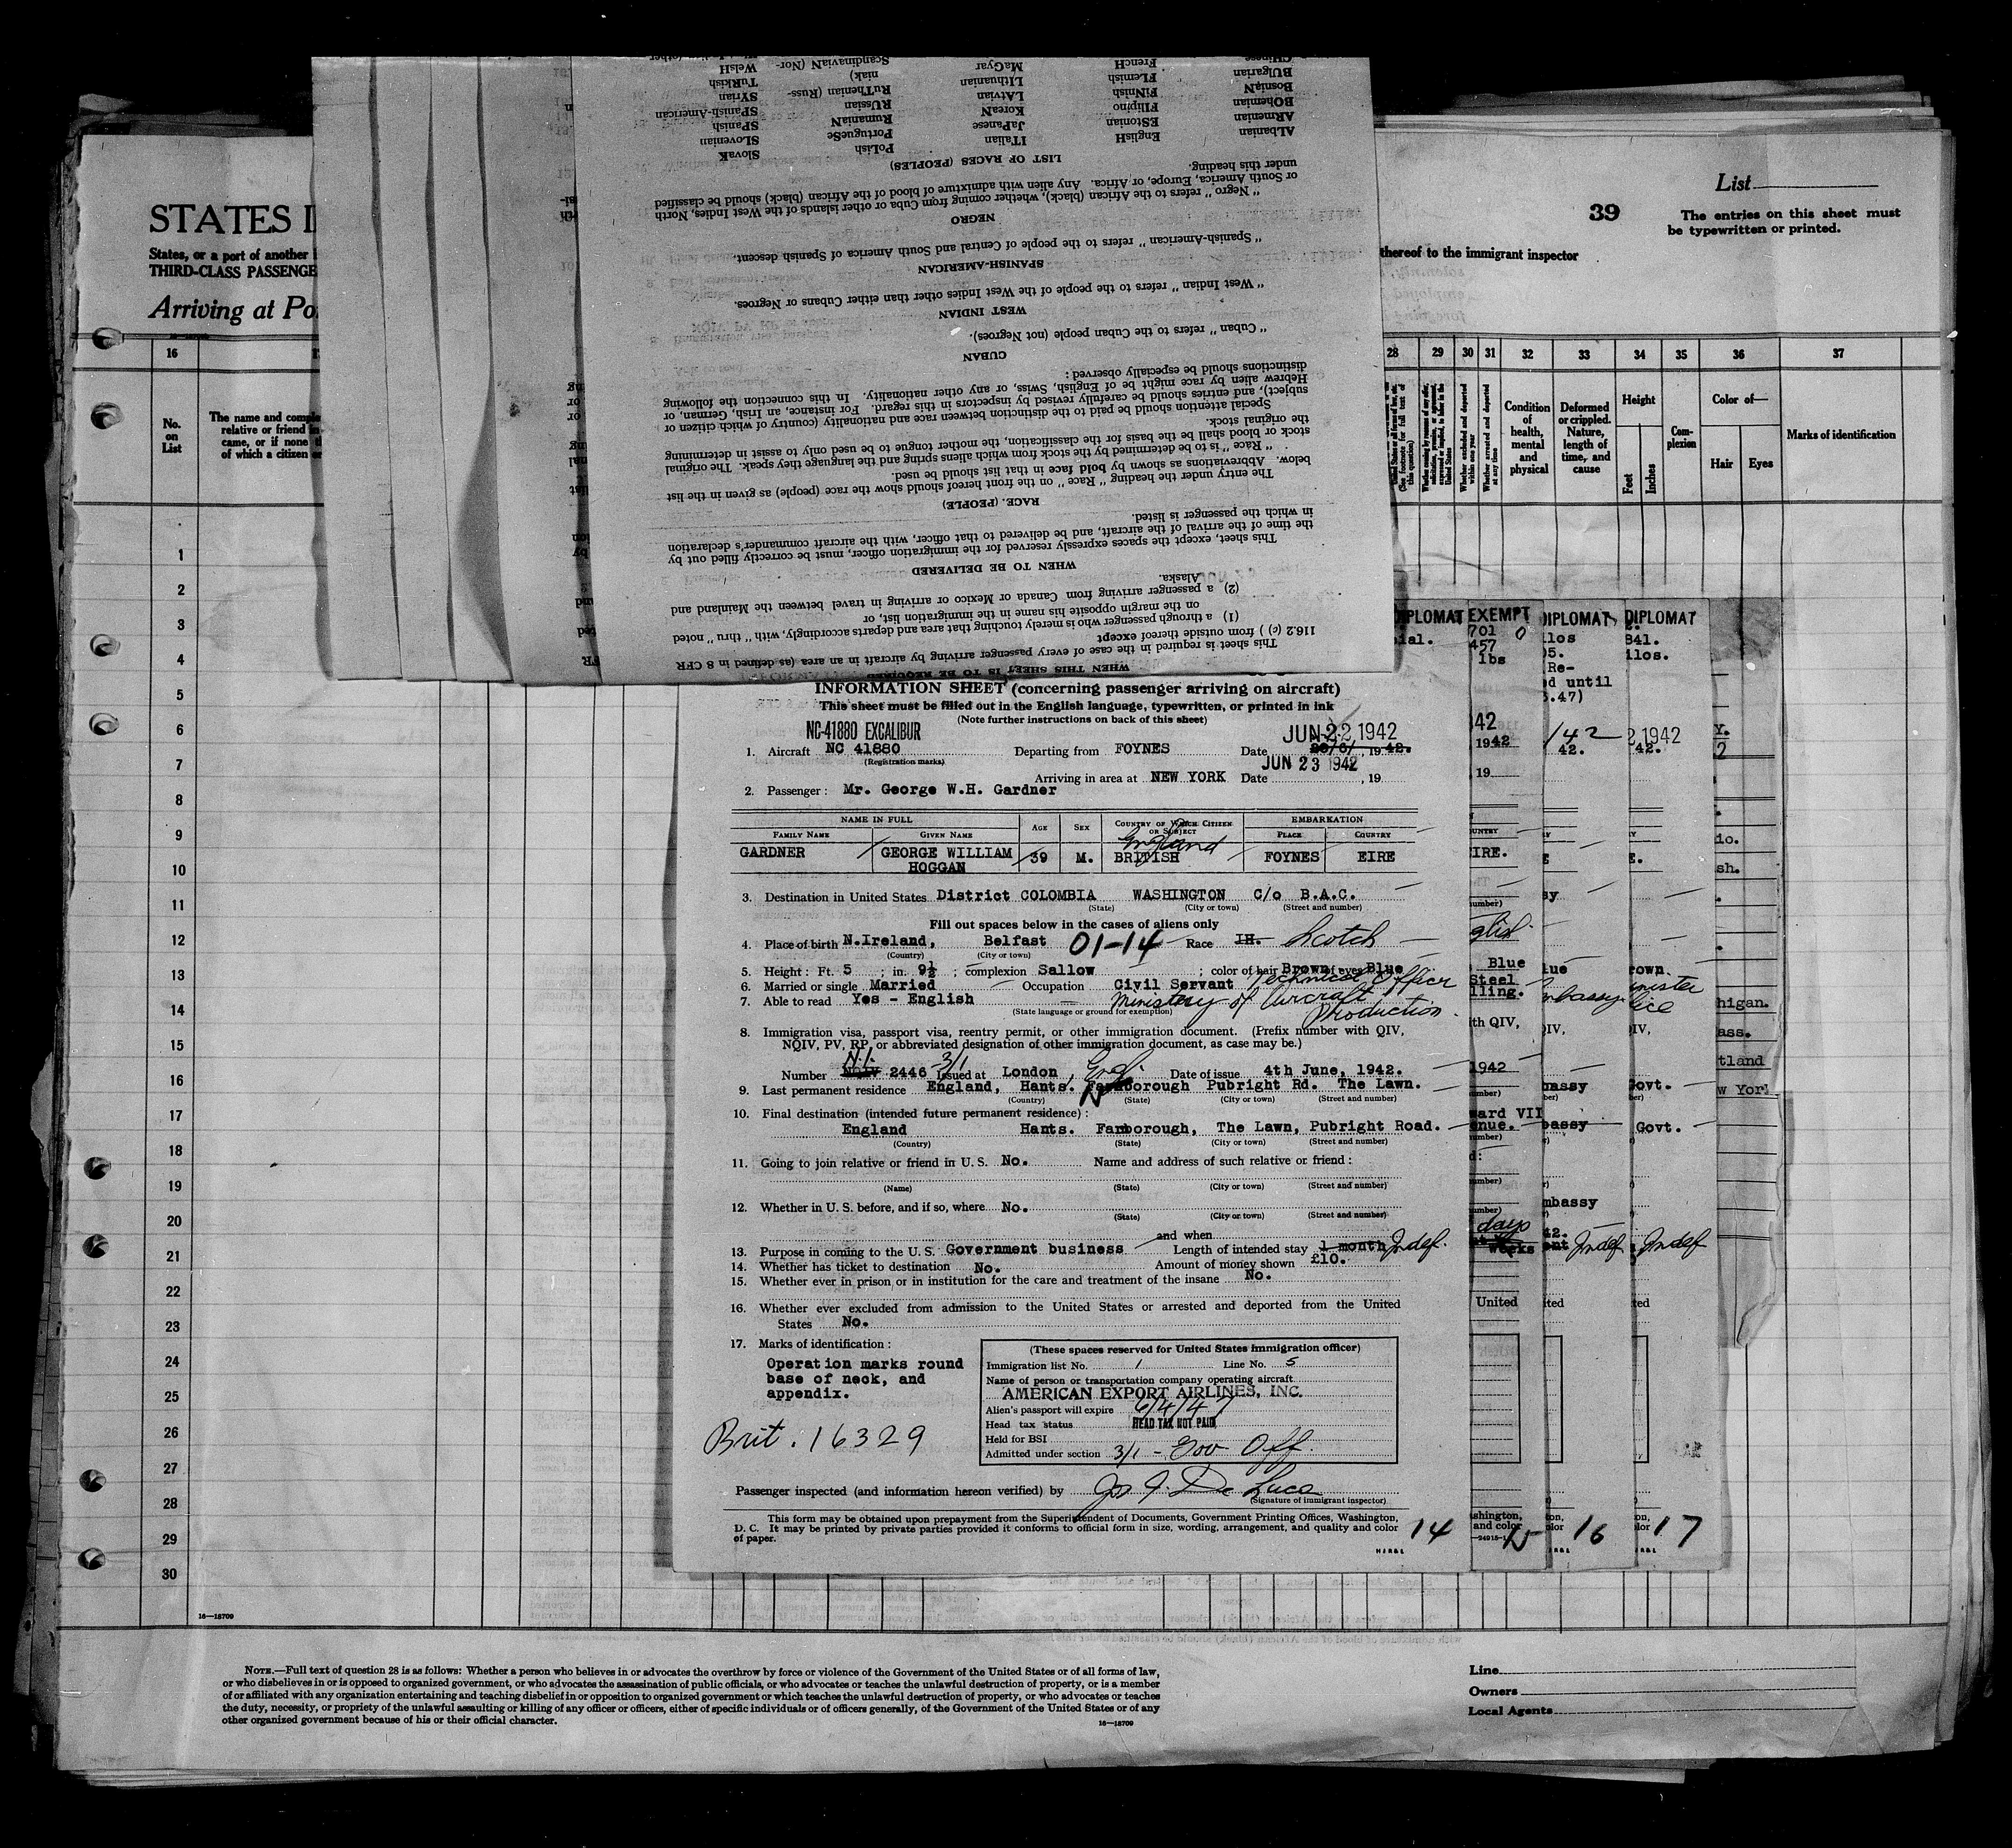 WelsH
TuRkish
SYrian
SPanish-American
SPaniSh
SLOvenian
SlovaK
Scandinavian (Nor-
niak)
RuThenian (Russ-
RUssian
RumaniaN
PortugueSe
PoLish
MaGyar
LIthuanian
LAtvian
KoreaN
JaPanese
ITalian
FrencH
FLemish
FiNnish
FIlipino
EStonian
EnglisH
BUlgarian
BosniaN
BOhemian
ARmenian
ALbanian
LIST OF RACES (PEOPLES)
under this heading.
or South America, Europe, or Africa. Any alien with admixture of blood of the African (black) should be classified
"Negro" refers to the African (black), whether coming from Cuba or other islands of the West Indies, North
NEGRO
"Spanish-American" refers to the people of Central and South America of Spanish descent.
SPANISH-AMERICAN
"West Indian" refers to the people of the West Indies other than either Cubans or Negroes.
WEST INDIAN
"Cuban" refers to the Cuban people (not Negroes).
CUBAN
distinctions should be especially observed:
Hebrew alien by race might be of English, Swiss, or any other nationality. In this connection the following
subject), and entries should be carefully revised by inspectors in this regard. For instance, an Irish, German, or
Special attention should be paid to the distinction between race and nationality (country of which citizen or
the original stock.
stock or blood shall be the basis for the classification, the mother tongue to be used only to assist in determining
"Race" is to be determined by the stock from which aliens spring and the language they speak. The original
below. Abbreviations as shown by bold face in that list should be used.
The entry under the heading "Race" on the front hereof should show the race (people) as given in the list
RACE. (PEOPLE)
in which the passenger is listed.
the time of the arrival of the aircraft, and be delivered to that officer, with the aircraft commander's declaration
This sheet, except the spaces expressly reserved for the immigration officer, must be correctly filled out by
WHEN TO BE DELIVERED
Alaska.
(2) a passenger arriving from Canada or Mexico or arriving in travel between the Mainland and
on the margin opposite his name in the immigration list, or
(1) a through passenger who is merely touching that area and departs accordingly, with "thru" noted
116.2 (c) ) from outside thereof except
This sheet is required in the case of every passenger arriving by aircraft in an area (as defined in 8 CFR
WHEN THIS SHEET IS TO BE REQUIRED
STATES I
States, or a port of another
THIRD-CLASS PASSENGE
Arriving at Po
List
39
The entries on this sheet must
be typewritten or printed.
thereof to the immigrant inspector
16
No.
on
List
The name and comple
relative or friend in
came, or if none th
of which a citizen or
28 29 30 31 32 33 34 35 36 37
Whether excluded and deported within one year
Whether arrested and deported at any time
Condition of health, mental and physical
Deformed or crippled. Nature, length of time, and cause
Height
Feet
Inches
Com-
plexion
Color of—
Hair
Eyes
Marks of identification
1
2
3
4
5
6
7
8
9
10
11
12
13
14
15
16
17
18
19
20
21
22
23
24
25
26
27
28
29
30
16—18709
INFORMATION SHEET (concerning passenger arriving on aircraft)
This sheet must be filled out in the English language, typewritten, or printed in ink
(Note further instructions on back of this sheet)
NC-41880 EXCALIBUR
JUN 22 1942
1. Aircraft NC 41880 Departing from FOYNES Date 20/6/, 1942.
(Registration marks)
JUN 23 1942
Arriving in area at NEW YORK Date , 19
2. Passenger: Mr. George W.H. Gardner
NAME IN FULL AGE SEX COUNTRY OF WHICH CITIZEN OR SUBJECT EMBARKATION
FAMILY NAME GIVEN NAME PLACE COUNTRY
England
GARDNER GEORGE WILLIAM HOGGAN 39 M. BRITISH FOYNES EIRE
3. Destination in United States District COLOMBIA WASHINGTON C/o B.A.C.
(State) (City or town) (Street and number)
Fill out spaces below in the cases of aliens only
4. Place of birth N.Ireland, Belfast 01-14 Race IH. Scotch
(Country) (City or town)
5. Height: Ft. 5 ; in. 9½ ; complexion Sallow ; color of hair Brown of eyes Blue
6. Married or single Married Occupation Civil Servant Technical Officer
7. Able to read Yes - English Ministery of Aircraft
(State language or ground for exemption) Production.
8. Immigration visa, passport visa, reentry permit, or other immigration document. (Prefix number with QIV,
NQIV, PV, RP, or abbreviated designation of other immigration document, as case may be.)
N.I. 3/1
Number NQIV 2446 Issued at London, Engl. Date of issue 4th June, 1942.
9. Last permanent residence England, Hants. Farnborough Pubright Rd. The Lawn.
(Country) (State) (City or town) (Street and number)
10. Final destination (intended future permanent residence):
England Hants. Farborough, The Lawn, Pubright Road.
(Country) (State) (City or town) (Street and number)
11. Going to join relative or friend in U. S. No. Name and address of such relative or friend:
(Name) (State) (City or town) (Street and number)
12. Whether in U. S. before, and if so, where No.
(State) (City or town) (Street and number)
and when
13. Purpose in coming to the U. S. Government business Length of intended stay 1 month Indef.
14. Whether has ticket to destination No. Amount of money shown £10.
15. Whether ever in prison or in institution for the care and treatment of the insane No.
16. Whether ever excluded from admission to the United States or arrested and deported from the United
States No.
17. Marks of identification:
Operation marks round
base of neck, and
appendix.
Brit. 16329
(These spaces reserved for United States immigration officer)
Immigration list No. 1 Line No. 5
Name of person or transportation company operating aircraft
AMERICAN EXPORT AIRLINES, INC.
Alien's passport will expire 6/4/47
Head tax status HEAD TAX NOT PAID
Held for BSI
Admitted under section 3/1 - Gov Off.
Passenger inspected (and information hereon verified) by Jos J. De Luca
(Signature of immigrant inspector)
This form may be obtained upon prepayment from the Superintendent of Documents, Government Printing Offices, Washington,
D. C. It may be printed by private parties provided it conforms to official form in size, wording, arrangement, and quality and color
of paper.
14
DIPLOMAT EXEMPT DIPLOMAT DIPLOMAT
ial. 701 0 ilos 841.
457 05. ilos.
lbs Re-
d until
.47)
42
1942 /42 2 1942
42. 42.
19
IRE.
glish
Blue
Steel
lling.
embassy
rown.
inister
lice
higan.
ass.
tland
w York
1942
bassy Govt.
ward VII
enue. bassy Govt.
mbassy
days
weeks Indef Indef
United ited ted
16 17
NOTE.—Full text of question 28 is as follows: Whether a person who believes in or advocates the overthrow by force or violence of the Government of the United States or of all forms of law,
or who disbelieves in or is opposed to organized government, or who advocates the assassination of public officials, or who advocates or teaches the unlawful destruction of property, or is a member
of or affiliated with any organization entertaining and teaching disbelief in or opposition to organized government or which teaches the unlawful destruction of property, or who advocates or teaches
the duty, necessity, or propriety of the unlawful assaulting or killing of any officer or officers, either of specific individuals or of officers generally, of the Government of the United States or of any
other organized government because of his or their official character.
16—18709
Line
Owners
Local Agents